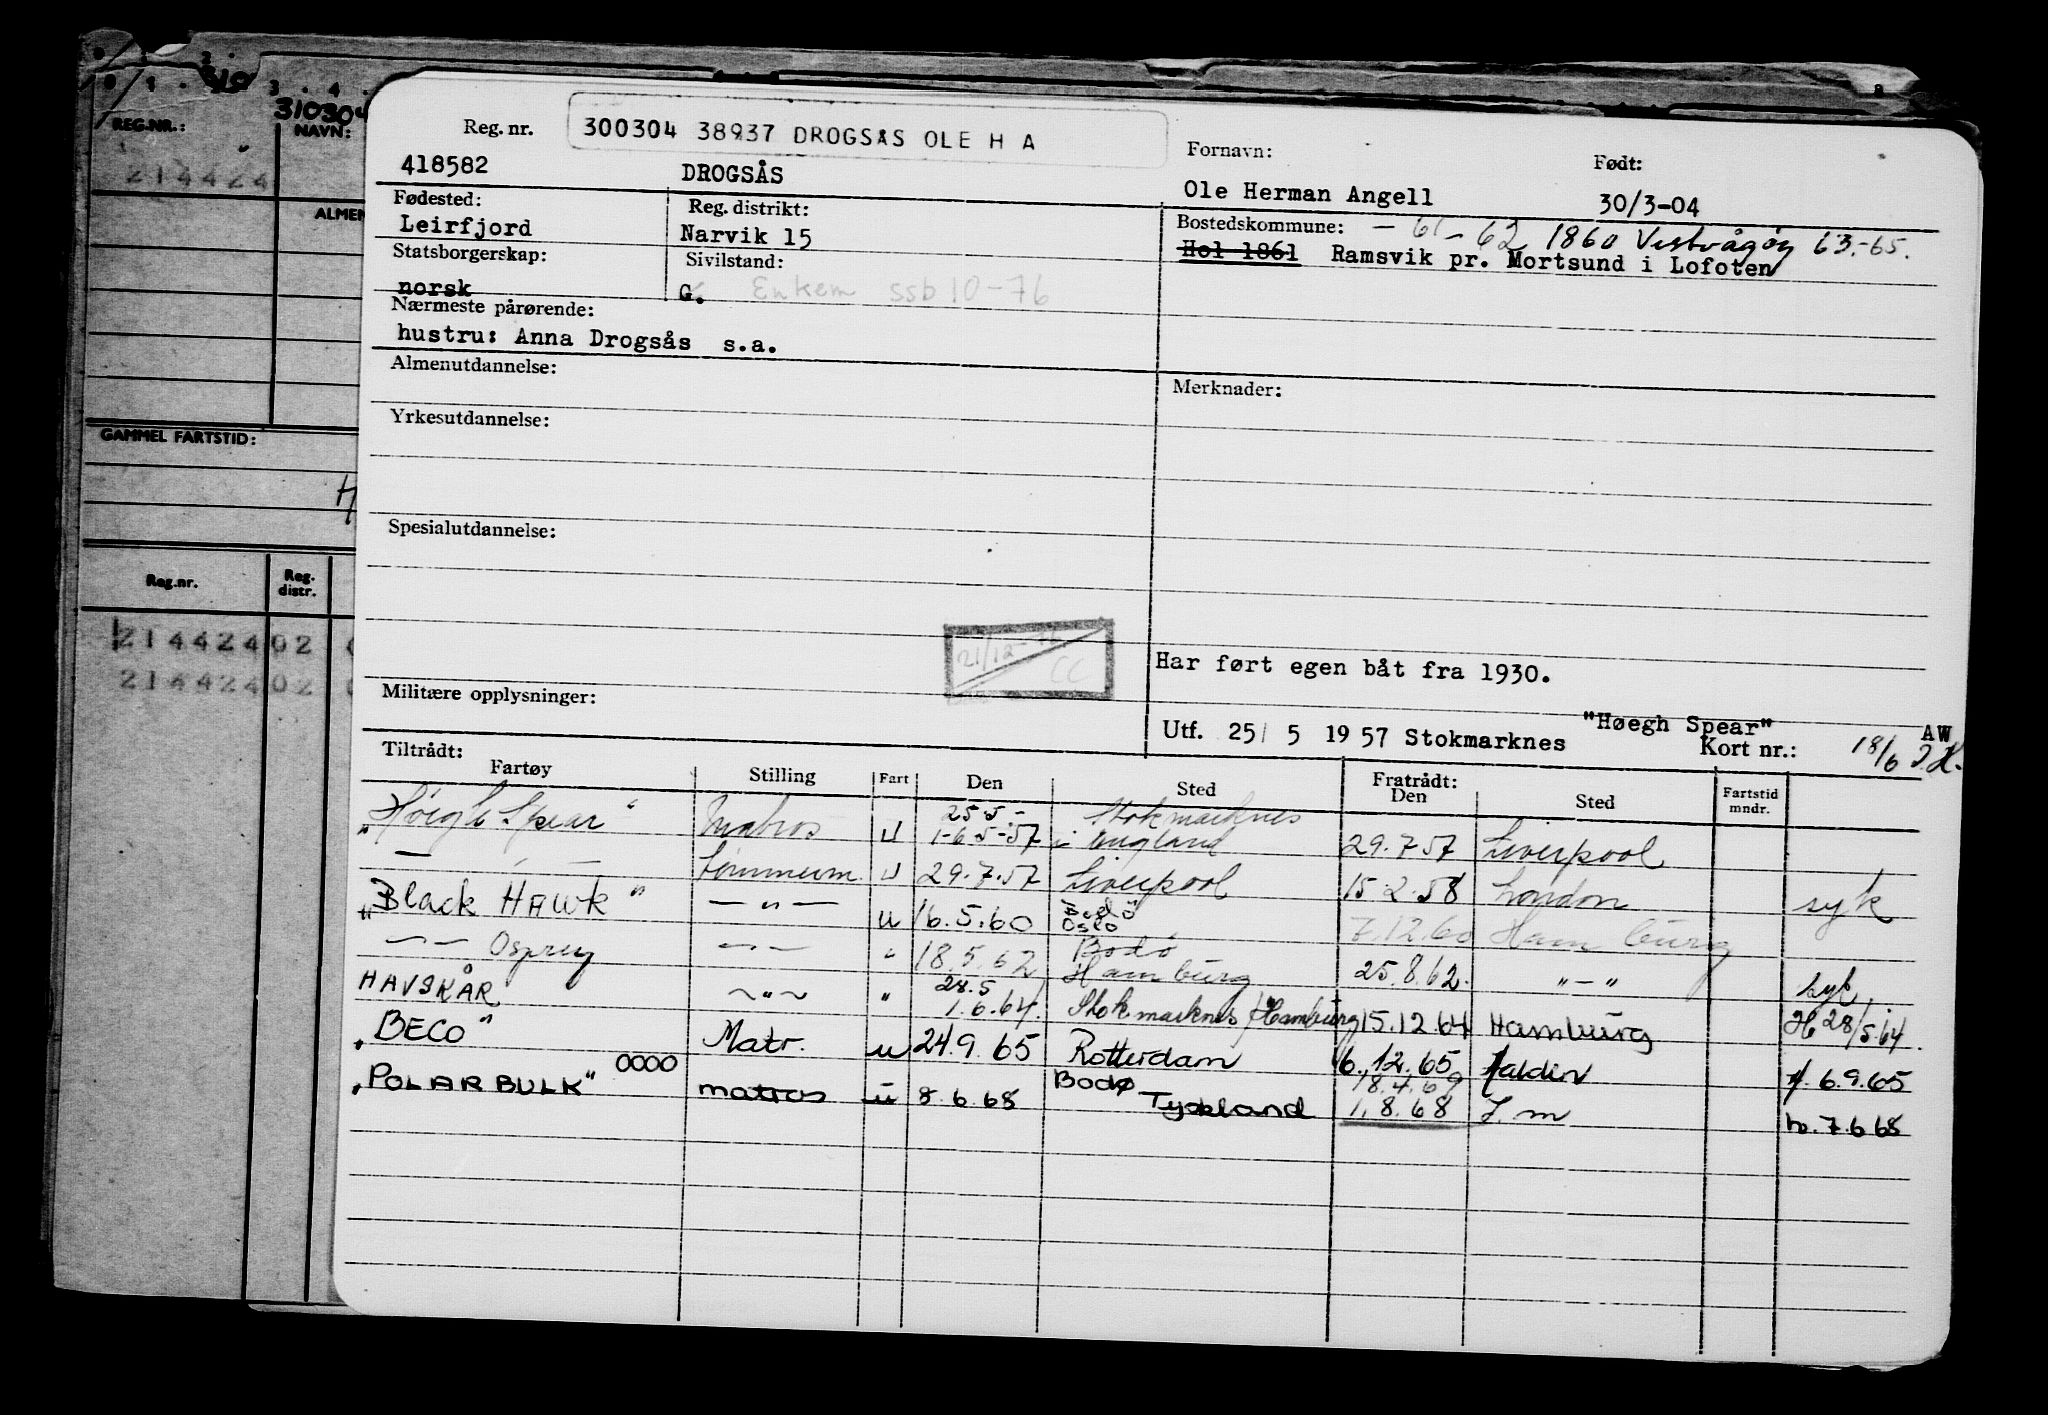 310304
REG.NR.:
NAVN:
214424
ALMEN
GAMMEL FARTSTID:
H
Reg.nr.
Reg. distr.
214424 02
214424 02
Reg. nr.
300304 38937 DROGSÅS OLE H A
Fornavn:
Født:
418582
DROGSÅS
Ole Herman Angell
30/3-04
Fødested:
Reg. distrikt:
Bostedskommune: - 61 - 62 1860 Vestvågøy 63.-65.
Leirfjord
Narvik 15
Hol 1861 Ramsvik pr. Mortsund i Lofoten
Statsborgerskap:
Sivilstand:
norsk
G. Enkem ssb 10-76
Nærmeste pårørende:
hustru: Anna Drogsås s.a.
Almenutdannelse:
Merknader:
Yrkesutdannelse:
Spesialutdannelse:
21/12-76
CC
Har ført egen båt fra 1930.
Militære opplysninger:
"Høegh Spear"
AW
Utf. 25/ 5 1957 Stokmarknes
Kort nr.:
18/6 J.K.
Tiltrådt:
Fartøy Stilling Fart Den Sted Fratrådt: Den Sted Fartstid mndr.
"Høegh Spear" Matros u 25.5.- 1-6-5-57 Stokmarknes i England 29.7.57 Liverpool
— " — Tømmerm. u 29.7.57 Liverpool 15.2.58 London syk
"Black Hawk" — " — u 16.5.60 Bodø Oslo 7.12.60 Hamburg
— " — Osprey — " — " 18.5.62 Bodø Hamburg 25.8.62. " — " syk
HAVSKÅR ~ " ~ " 28.5 1.6.64. Stokmarknes / Hamburg 15.12 64 Hamburg H 28/5.64.
"BECO" Matr. u 24.9.65 Rotterdam 6.12.65 Halden 6.9.65
"POLARBULK" 0000 matros u 8.6.68 Bodø Tyskland 18.4.69 1.8.68 7.6.68